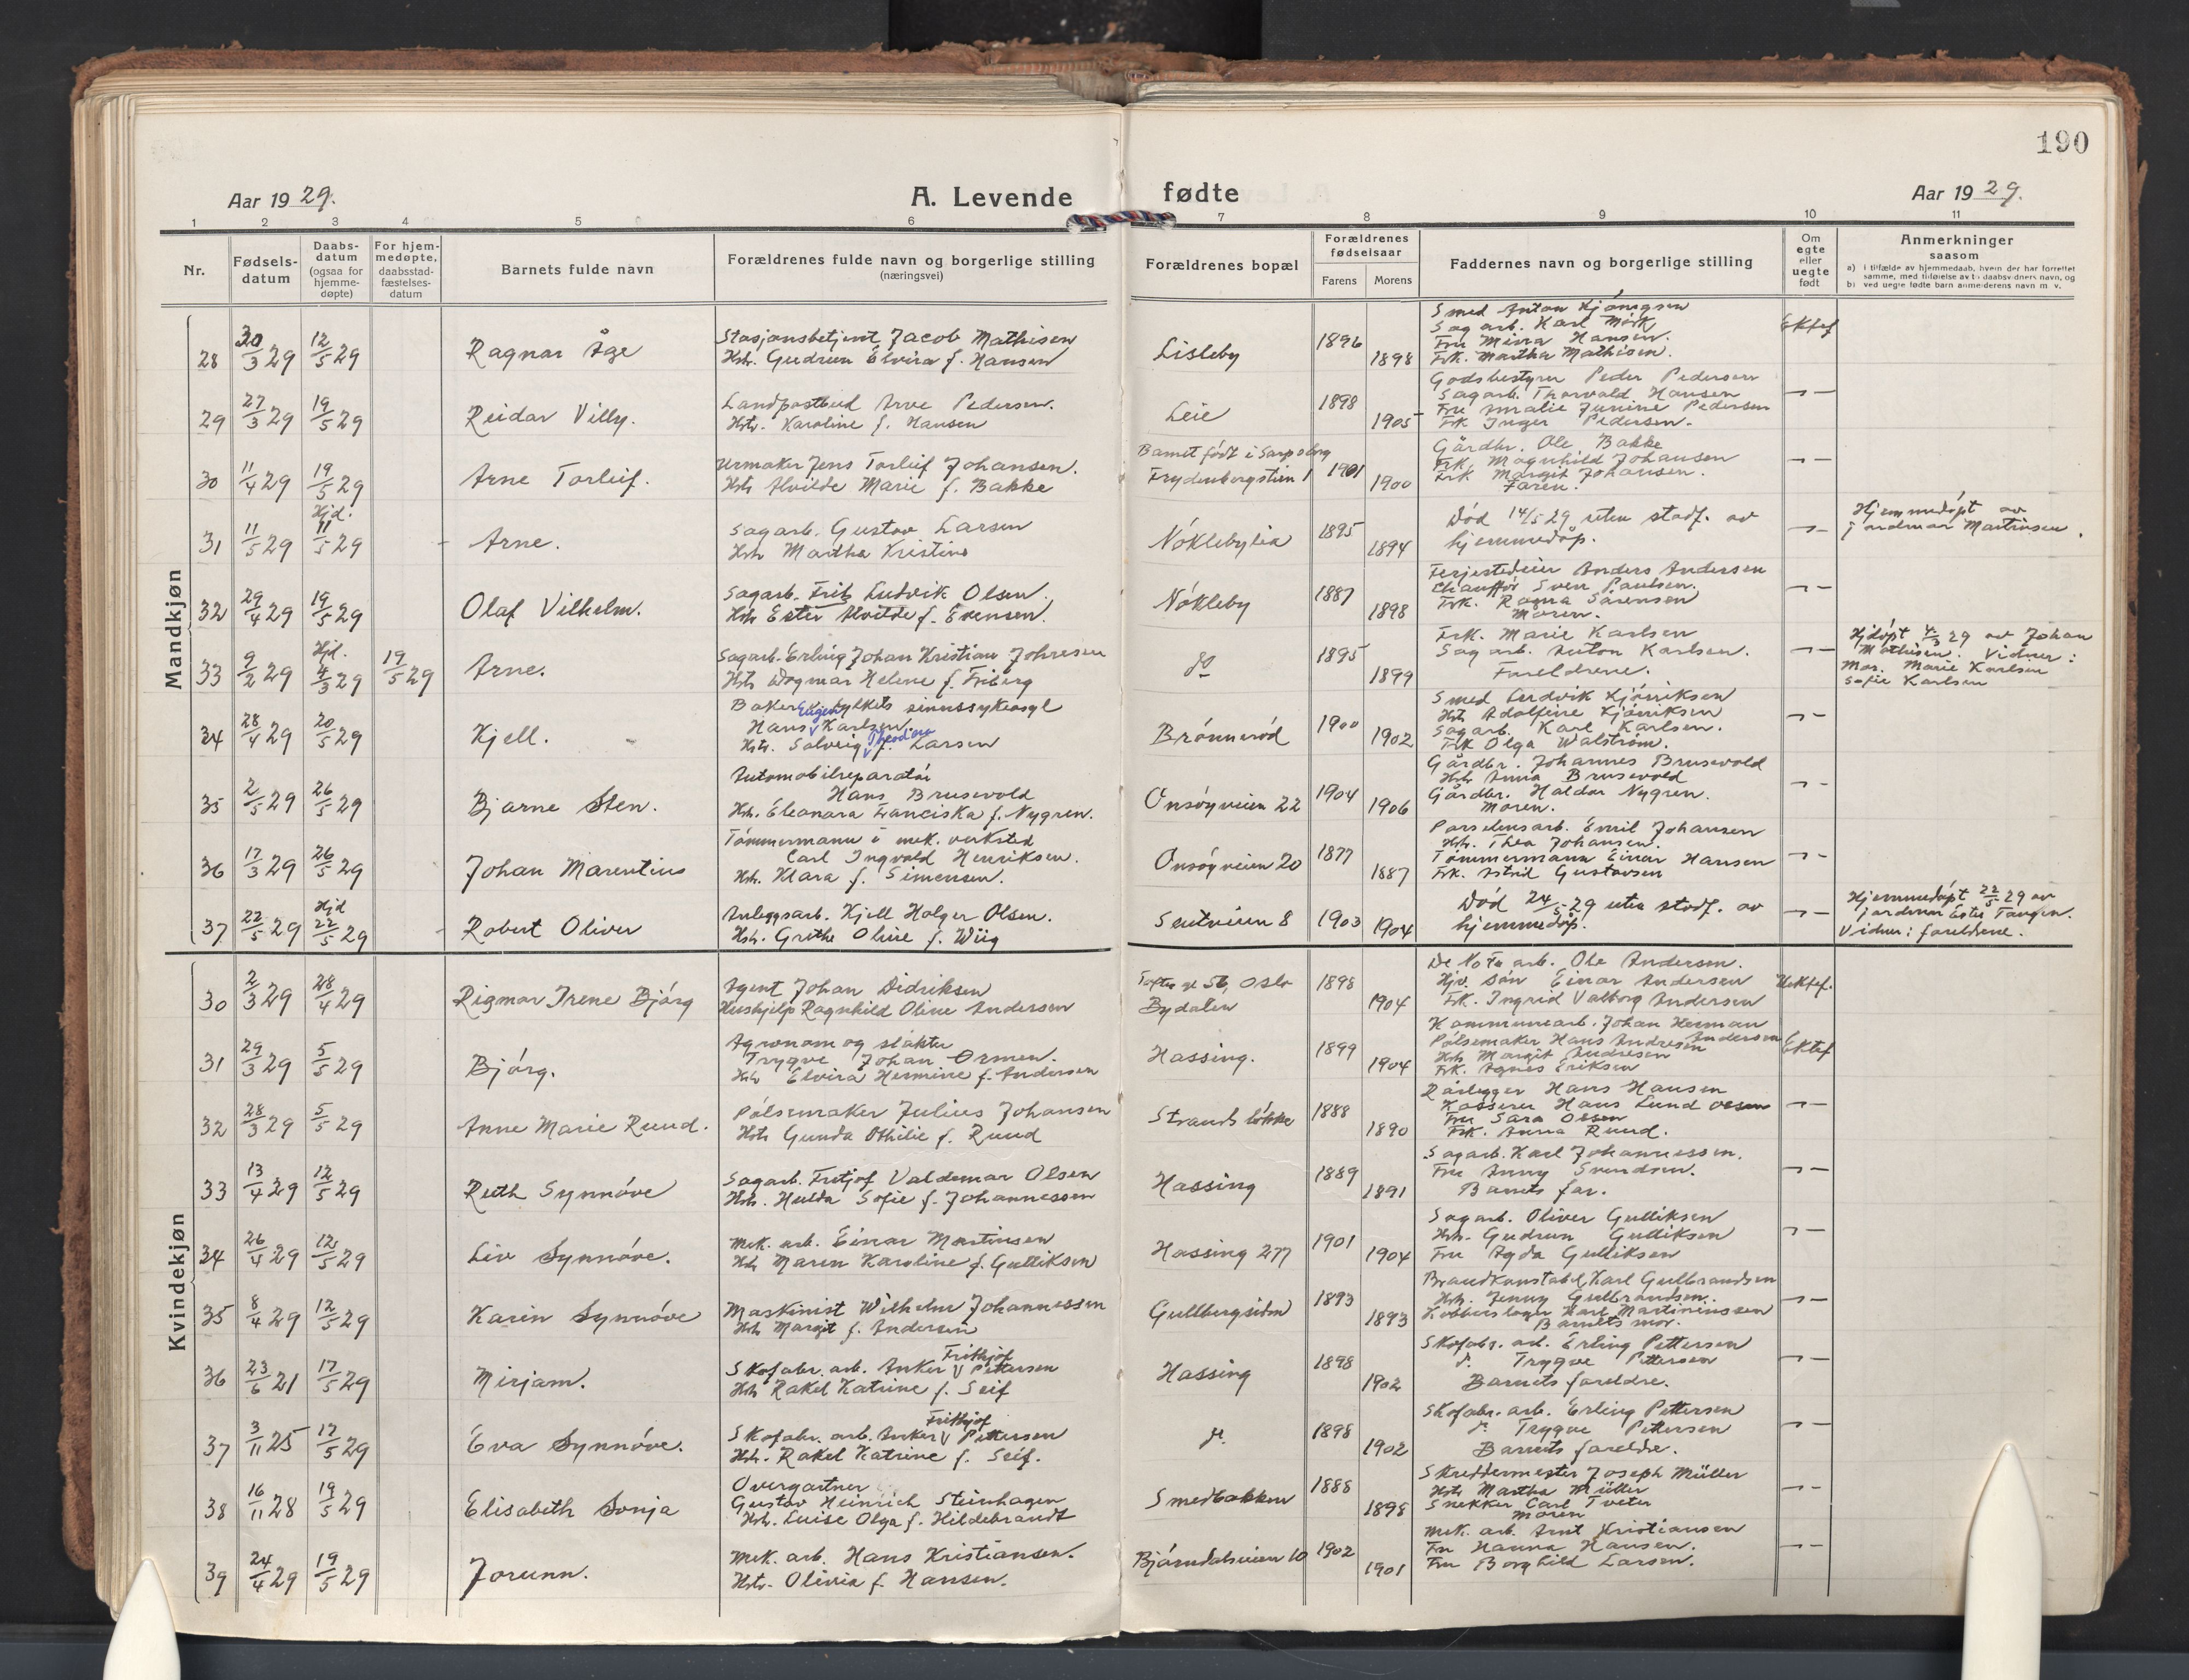 190
Aar 1929.
A. Levende fødte
Aar 1929.
1 2 3 4 5 6 7 8 9 10 11
Nr.
Fødselsdatum
Daabsdatum (ogsaa for hjemmedøpte)
For hjemmedøpte, daabsstadfæstelsesdatum
Barnets fulde navn
Forældrenes fulde navn og borgerlige stilling (næringsvei)
Forældrenes bopæl
Forældrenes fødselsaar
Farens Morens
Faddernes navn og borgerlige stilling
Om egte eller uegte født
Anmerkninger saasom
a) i tilfælde av hjemmedaab, hvem der har forrettet samme, med tilføielse av to daabsvidners navn, og
b) ved uegte fødte barn anmelderens navn m. v.
Mandkjøn
28 30/3 29 12/5 29 Ragnar Åge
Stasjonsbetjent Jacob Mathisen
Hstr. Gudrun Elvira f. Hansen
Lisleby 1896 1898
Smed Anton
Sagarb. Karl Mørk
Fru Minna Hansen.
Frk. Martha Mathisen.
Ektef
29 27/3 29 19/5 29 Reidar Villy.
Landpostbud Arve Pedersen.
Hstr. Karoline f. Hansen
Leie 1898 1905
Godsbestyrer Peder Pedersen
Sagarb. Thorvald Hansen
Fru Amalie Junine Pedersen
Frk Inger Pedersen.
30 11/4 29 19/5 29 Arne Torleif.
Urmaker Jens Torleif Johansen.
Hstr Alvilde Marie f. Bakke
Barnet født i Sarpsborg
Frydenbergstien 1 1901 1900
Gårdbr. Ole Bakke
Frk. Magnhild Johansen
Frk Margit Johansen.
Faren.
31 11/5 29 Hjd. 11/5 29 Arne.
Sagarb. Gustav Larsen
Hstr Martha Kristine
Nøklebylia 1895 1894
Død 14/5 29 uten stadf. av
hjemmedåp.
Hjemmedøpt av
jordmor Martinsen.
32 29/4 29 19/5 29 Olaf Vilhelm.
Sagarb. Frits Ludvik Olsen.
Hstr Ester Alvilde f. Evensen.
Nøkleby 1887 1898
Ferjestedeier Anders Andersen
Chauffør Sven Paulsen.
Frk. Ragna Sørensen
Moren.
33 9/2 29 Hjd. 4/3 29 19/5 29 Arne.
Sagarb. Erling Johan Kristian Johresen
Hstr Dagmar Helene f. Friberg
do 1895 1899
Frk. Marie Karlsen
Sagarb. Anton Karlsen.
Foreldrene.
Hjdøpt 4/3 29 av Johan
Mathisen. Vidner:
Marie Karlsen
Sofie Karlsen
34 28/4 29 20/5 29 Kjell.
Baker i fylkets sinnssykeasyl
Hans Eugen Karlsen.
Hstr. Solveig Theodora f. Larsen
Brønnerød 1900 1902
Smed Ludvik Kjønriksen
Hstr Adolfine Kjønriksen
Sagarb. Karl Karlsen.
Frk Olga Walstrøm.
35 2/5 29 26/5 29 Bjarne Sten.
Automobilreparatør
Hans Brusevold
Hstr. Eleonara Franciska f. Nygren.
Onsøyveien 22 1904 1906
Gårdbr. Johannes Brusevold
Hstr Anna Brusevold
Gårdbr. Haldor Nygren.
Moren.
36 17/3 29 26/5 29 Johan Marentius
Tømmermann i mek. verksted
Carl Ingvald Henriksen.
Hstr. Klara f. Simensen.
Onsøyveien 20 1877 1887
arb. Emil Johansen
Hstr. Thea Johansen.
Tømmermann Einar Hansen
Frk. Astrid Gustavsen
37 22/5 29 Hjd 22/5 29 Robert Oliver
Anleggsarb. Kjell Holger Olsen.
Hstr. Grethe Oline f. Wiig
8 1903 1904
Død 24/5 29 uten stadf. av
hjemmedåp.
Hjemmedøpt 22/5 29 av
jordmor Ester Tangen.
Vidner: foreldrene.
Kvindekjøn
30 2/3 29 28/4 29 Rigmor Irene Bjørg
Agent Johan Didriksen
Hushjelp Ragnhild Oline Andersen
Toftes gt 56, Oslo
Bydalen 1898 1904
De No Fa arb. Ole Andersen.
Hjv. søn Einar Andersen
Frk. Ingrid Valborg Andersen
Uektef.
31 29/3 29 5/5 29 Bjørg.
Agronom og slakter
Trygve Johan Ormen.
Hstr Elvira Hermine f. Andersen
Hassing. 1899 1904
Kommunearb. Johan Herman Andersen
Pølsemaker Hans Andresen
Hstr Margit Andresen
Frk. Agnes Eriksen
Ektef
32 28/3 29 5/5 29 Anne Marie Ruud.
Pølsemaker Julius Johansen
Hstr Gunda Othilie f. Ruud
Strands løkke 1888 1890
Rørlegger Hans Hansen
Kasserer Hans Lund Olsen
Fru Sara Olsen
Frk. Anna Ruud.
33 13/4 29 12/5 29 Ruth Synnøve
Sagarb. Fritjof Valdemar Olsen
Hstr. Hulda Sofie f. Johannessen
Hassing 1889 1891
Sagarb. Karl Johannessen.
Fru Anny Svendsen.
Barnets far.
34 26/4 29 12/5 29 Liv Synnøve.
Mek. arb. Einar Martinsen
Hstr Maren Karoline f. Gulliksen
Hassing 277 1901 1904
Sagarb. Oliver Gulliksen
Hstr. Gudrun Gulliksen
Fru Agda Gulliksen
35 8/4 29 12/5 29 Karin Synnøve
Maskinist Wilhelm Johannessen
Hstr Margit f. Andersen
Gullbergsiden 1893 1893
Brandkonstabel Karl Gulbrandsen
Hstr. Jenny Gulbrandsen.
Kobberslager Karl Martiniussen
Barnets mor.
36 23/6 21 17/5 29 Mirjam.
Skofabr. arb. Anker Frithjof Pettersen
Hstr Rakel Katrine f. Seif
Hassing 1898 1902
Skofabr. arb. Erling Pettersen
do Trygve Pettersen
Barnets foreldre.
37 3/11 25 17/5 29 Eva Synnøve.
Skofabr. arb. Anker Frithjof Pettersen
Hstr. Rakel Katrine f. Seif.
do. 1898 1902
Skofabr. arb. Erling Pettersen
do Trygve Pettersen
Barnets foreldre.
38 16/11 28 19/5 29 Elisabeth Sonja
Overgartner
Gustav Heinrich Steinhagen
Hstr. Luise Olga f. Hildebrandt
Smedbakken 1888 1898
Skreddermester Joseph Müller
Hstr Martha Müller
Snekker Carl Tveter
Moren
39 24/4 29 19/5 29 Jorunn.
Mek. arb. Hans Kristiansen.
Hstr. Olivia f. Hansen.
Bjørndalsveien 10 1902 1901
Mek. arb. Arnt Kristiansen
Fru Hanna Hansen.
Fru Borghild Larsen.